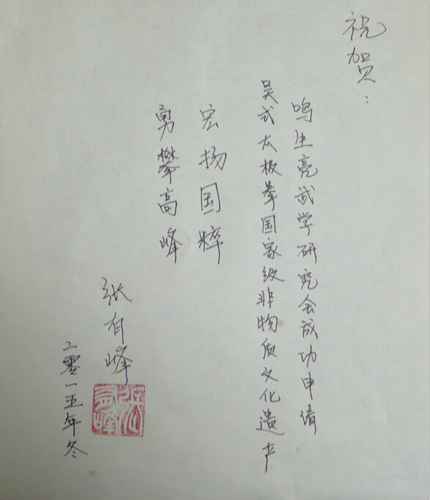 祝贺：
鸣生亮武学研究会成功申请
吴式太极拳国家级非物质文化遗产
宏扬国粹
勇攀高峰
张有峰
二零一五年冬